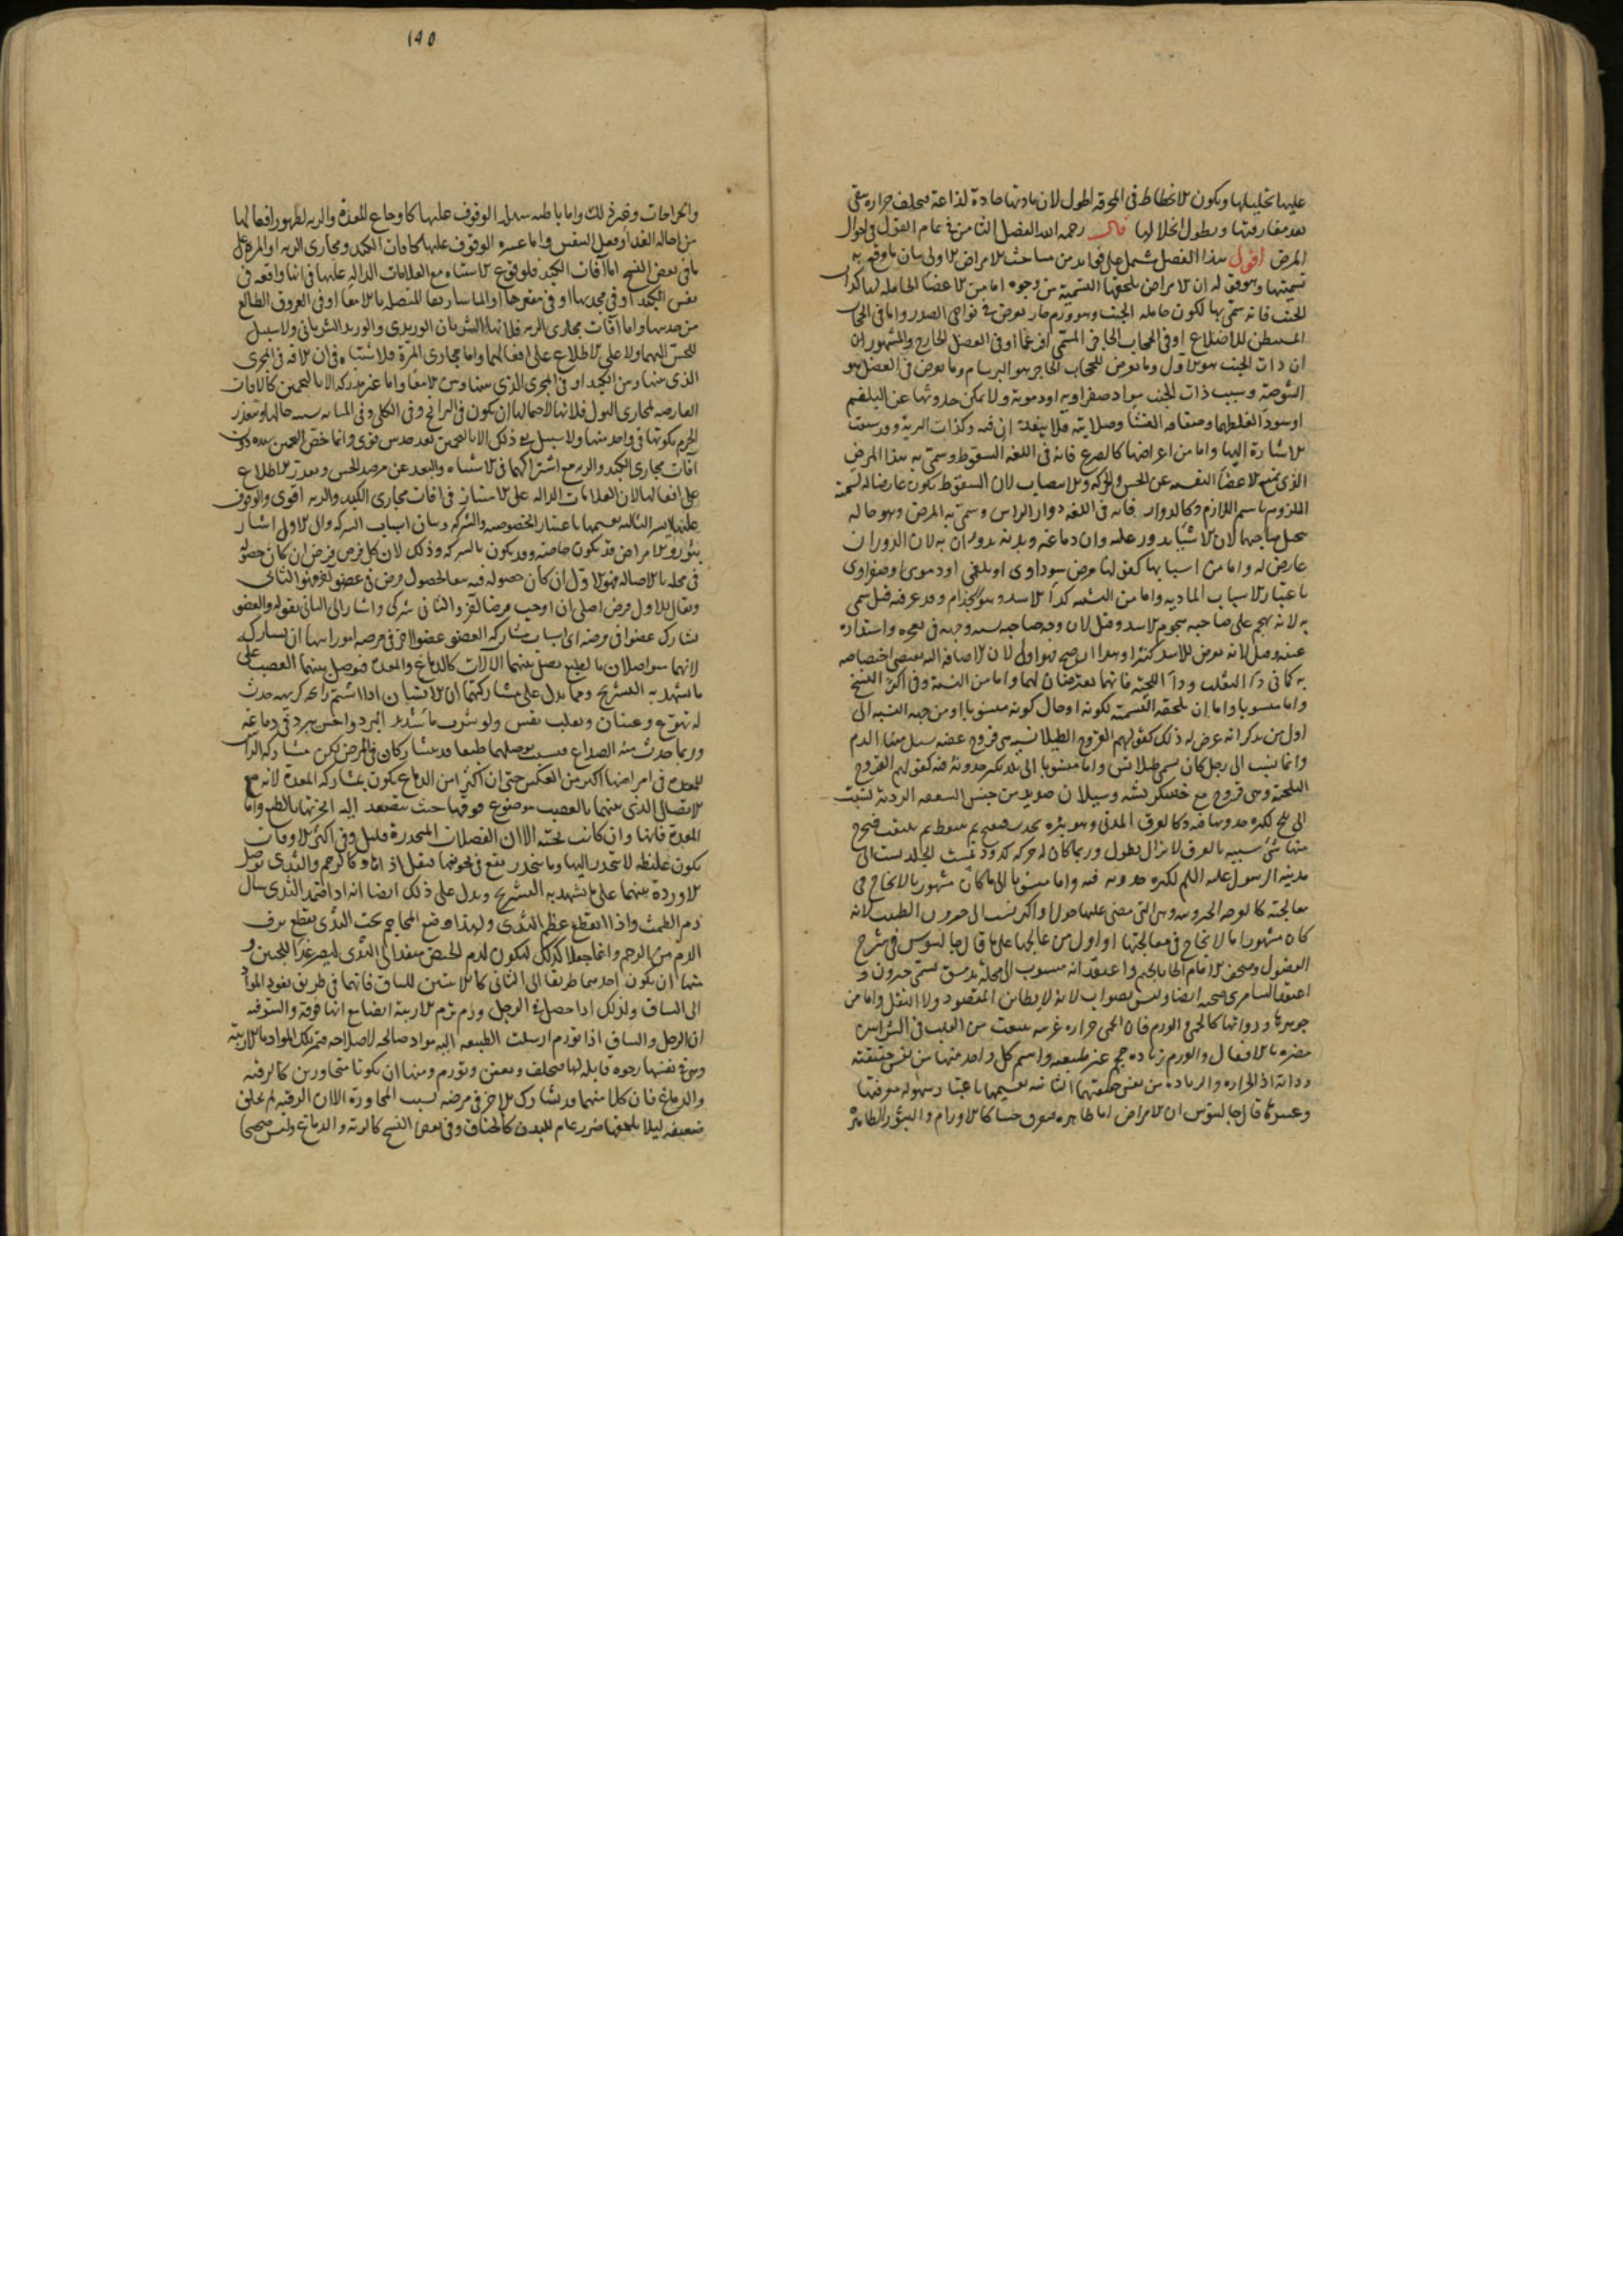 عليها تحليلها ويكون الانحطاط في المحرقة اطول لان مادتها حادة لذاعة فتخلف حرارة تبقى
بعد مفارقتها ويطول انحلالها قال رحمه الله الفصل الثامن في تمام القول في احوال
المرض اقول هذا الفصل يشتمل على من مباحث الامراض الاولى بيان ما وقع به
تسميتها وهو قوله ان الامراض تلحقها التسمية من وجوه اما من الاعضا الحاملة لها كذات
الجنب فانه سمى بها لكون حامله الجنب وهو ورم حار يعرض في نواحي الصدر واما في الحجاب
المستبطن للاضلاع او في الحجاب الحاجز المسمى او في العضل الخارج والمشهور ان
ان ذات الجنب هو الاول وما يعرض للحجاب الحاجز هو البرسام وما يعرض في العضل هو
الشوصة وسبب ذات الجنب مواد صفراوية او دموية ولا يمكن حدوثها عن البلغم
او سودا لغلظهما وصفاقة الغشا وصلابته فلا ينفذ ان فيه وكذات الرية وقد سبقت
الاشارة اليها واما من اعراضها كالصرع فانه في اللغة السقوط وسمى به هذا المرض
الذي يمنع الاعضا النفسية عن الحس والحركة والانتصاب لان السقوط يكون عارضا له تسمية
الملزوم باسم اللازم وكالدوار فانه في اللغة دوار الراس وسمى به المرض وهو حالة
يتخيل صاحبها ان الاشيا يدور عليه وان دماغه وبدنه يدوران به لان الدوران
عارض له واما من اسبابها كقولنا مرض سوداوي او بلغمي او دموي او صفراوي
باعتبار الاسباب المادية واما من التشبيه كدا الاسد وهو الجذام وقد عرفته قيل سمى
به لانه يهجم على صاحبه هجوم الاسد وقيل لان وجه صاحبه يشبه وجهه في تعجره واستدارة
عينه وقيل لانه يعرض للاسد كثيرا وهذا اصح فهو اولى لان الاضافة اليه تقتضي اختصاصه
به كما في دا الثعلب ودا الحية فانهما يعترضان لهما واما من النسبة وفي اكثر النسخ
واما منسوبا واما ان تلحقه التسمية لكونه او حال كونه منسوبا او من جهة النسبة الى
اول من يذكر انه عرض له ذلك كقولهم القروح الطيلانية هي قروح عفنة يسيل منها الدم
وانما ينسب الى رجل كان يسمى طيلانس واما منسوبا الى بلد يكثر حدوثه فيه كقولهم القروح
البلخية وهي قروح مع خشكريشه وسيلان صديد من جنس السعفة الردية نسبت
الى بلخ لكثرة حدوثها فيه وكالعرق المدني وهو بثرة تحدث ثم تتنفط ثم تتثقب فتخرج
منها شي شبيه بالعرق لا يزال يطول وربما كان له حركة كدودية تحت الجلد نسبت الى
مدينة الرسول عليه السلم لكثرة حدوثه فيه واما منسوبا الى ما كان مشهورا بالانجاح في
معالجته كالقرحة الخيرونية وهي التي مضى عليها حول واكثر نسب الى خيرون الطبيب لانه
كان مشهورا بالانجاح في معالجتها او اول من عالجها على ما قال جالينوس في شرح
الفصول واعتقد انه منسوب الى محلة بدمشق تسمى جيرون و
اعتقد السامري صحته ايضا وليس بصواب لانه لا يطابق المقصود ولا النقل واما من
جوهرها وذواتها كالحمى والورم فان الحمى حرارة غريبة تنبعث من القلب في الشرايين
مضرة بالافعال والورم زيادة حجم غير طبيعية واسم كل واحد منهما من نفس حقيقته
وذاته اذ الحرارة والزيادة من نفس حقيقتهما الثانية تقسيمها باعتبار وسهولة معرفتها
وعسرها قال جالينوس ان الامراض اما ظاهرة تعرف حسا كالاورام والبثور الظاهرة
١٩٥
والجراحات وغير ذلك واما باطنة سهلة الوقوف عليها كاوجاع المعدة والرية لظهور افعالها
من احالة الغذا وفعل النفس واما عسرة الوقوف عليها كافات الكبد ومجاري الرية او المرة على
ما في بعض النسخ اما آفات الكبد فلوقوع الاشتباه مع العلامات الدالة عليها في انها واقعة في
نفس الكبد او في محدبها او في مقعرها او الماساريقا المتصلة بالامعا او في العروق الطالع
من حدبتها واما آفات مجاري الرية فلانها الشريان الوريدي والوريد الشرياني ولا سبيل
للحس اليهما ولا على الاطلاع على افعالهما واما مجاري المرة فلاشتباه في ان الآفة في المجرى
الذي بينها وبين الكبد او في المجرى الذي بينها وبين الامعا واما غير مدركة الا بالتخمين كالآفات
العارضة لمجاري البول فلانها لاحتمالها ان يكون في البرابخ وفي الكلى وفي المثانة يشبه حالها ويتعذر
الجزم بكونها في واحد منها ولا سبيل في ذلك الا بالتخمين بعد حدس قوي وانما خص التخمين بهذه دون
آفات مجاري الكبد والرية مع اشتراكهما في الاشتباه والبعد عن مرصد الحس وتعذر الاطلاع
على افعالها لان العلامات الدالة على في آفات مجاري الكبد والرية اقوى والوقوف
عليها ايسر الثالثة تقسيمها باعتبار الخصوصية والشركة وبيان اسباب الشركة والى الاول اشار
بقوله والامراض قد تكون خاصة وقد يكون بالشركة وذلك لان كل مرض يفرض ان كان حصوله
في محله بالاصالة فهو الاول ان كان حصوله فيه تبعا لحصول مرض في عضو اخر فهو الثاني
ويقال للاول مرض اصلي ان اوجب مرضا لآخر والثاني شركي واشار الى الثاني بقوله والعضو
يشارك عضوا في مرضه اي اسباب مشاركة العضو عضوا آخر في مرضه امور منها ان يشاركه
لانهما متواصلان بالطبع تصل بينهما الآلات كالدماغ والمعدة فيوصل بينهما العصب على
ما يشهد به التشريح ومما يدل على مشاركتهما ان الانسان اذا اشتم رائحة كريهة حدث
له تهوع وغثيان وتقلب نفس ولو شرب ما شديد البرد واحس ببرده في دماغه
وربما حدث منه الصداع فبسبب توصلهما طبعا قد يتشاركان في المرض لكن مشاركة الراس
للمعدة في امراضها اكثر من العكس حتى ان اكثر امراض الدماغ يكون بمشاركة المعدة لانه مع
الاتصال الذي بينهما بالعصب موضوع فوقها حيث تتصعد اليه ابخرتها بالطبع واما
المعدة فانها وان كانت تحته الا ان الفضلات المنحدرة قليل وفي اكثر الاوقات
تكون غليظة لا تنحدر اليها وما ينحدر يقع في تجويفها فيقل اذاه وكالرحم والثدي توصل
الاوردة بينهما على ما يشهد به التشريح ويدل على ذلك ايضا انه اذا الثدي سال
دم الطمث واذا انقطع عظم الثدي ولهذا وضع المحاجم تحت الثدي يقطع نزف
الدم من الرحم وانما جعلا كذلك ليكون لدم الحيض منفذ الى الثدي ليصير غذا للجنين و
منها ان يكون احدهما طريقا الى الثاني كالاربيتين للساق فانهما في طريق نفوذ المواد
الى الساق ولذلك اذا حصل في الرجل ورم تورم الاربية ايضا مع انها فوقه والسبب فيه
ان الرجل والساق اذا تورم ارسلت الطبيعة اليه مواد صالحة لاصلاحه فتمر تلك المواد بالاربية
وهي في نفسها رخوة قابلة لها فتتخلف وتعفن وتورم ومنها ان يكونا متجاورين كالرقبة
والدماغ فان كلا منهما قد يشارك الآخر في مرضه بسبب المجاورة الا ان الرقبة لم تخلق
ضعيفة ليلا يلحقها ضرر عام للبدن كالخناق وفي بعض النسخ كالرية والدماغ وليس صحيحا